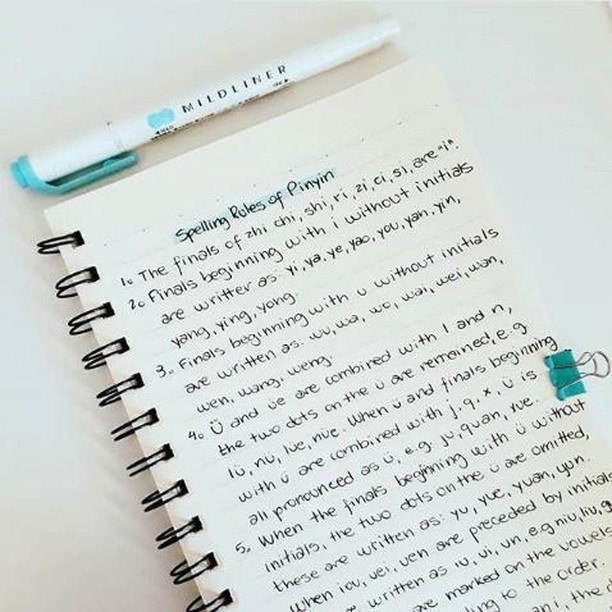 MILDLINER
Spelling Rules of Pinyin
1. The finals of zhi chi, shi, ri, zi, ci, si, are "i".
2. Finals beginning with i without initials
are written as: yi, ya, ye, yao, you, yan, yin,
yang, ying, yong.
3. Finals beginning with u without initials
are written as: wu, wa, wo, wai, wei, wan,
wen, wang, weng.
4. Ü and üe are combined with l and n,
the two dots on the ü are remained, e.g.
lü, nü, lüe, nüe. When ü and finals beginning
with ü are combined with j, q, x, ü is
all pronounced as ü, e.g. ju, quan, xue.
5. When the finals beginning with ü without
initials, the two dots on the ü are omitted,
these are written as: yu, yue, yuan, yun.
When iou, uei, uen are preceded by initials
written as iu, ui, un, e.g niu, liu, g
are marked on the vowels
to the order.
i, the